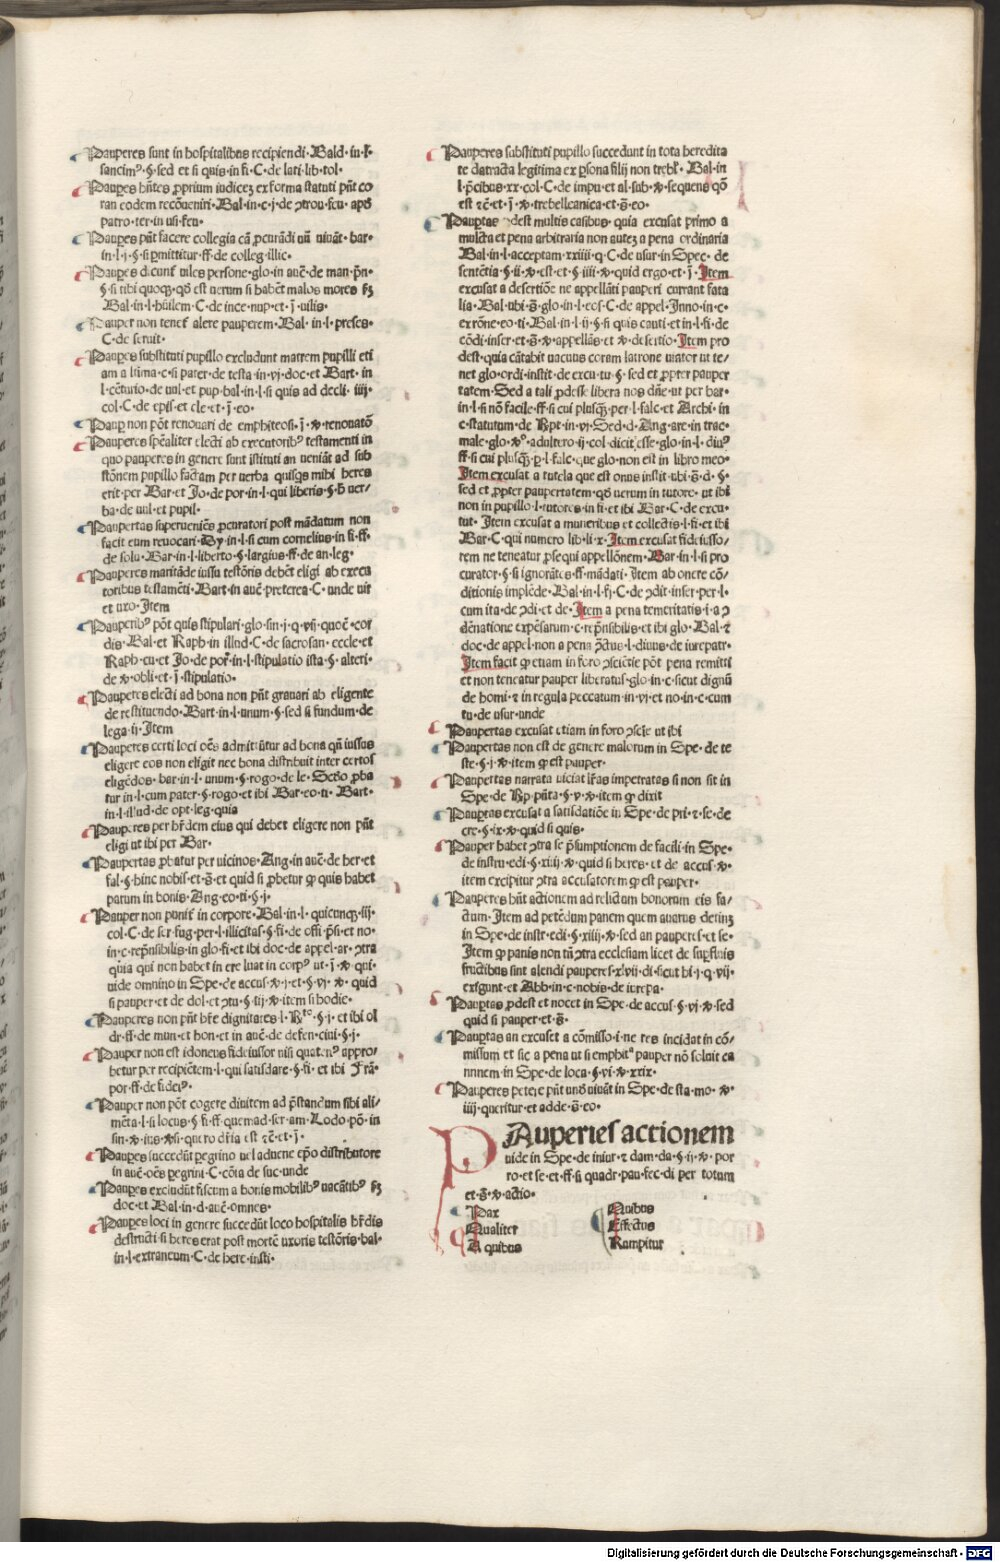 Pauperes sunt in hospitalibus recipiendi. Bald. in. l.
sancimꝰ. §. sed et si quis. in fi. C. de lati. lib. tol.
Paupes hñtes ꝓprium iudiceʒ ex forma statuti pñt co
ram eodem recõueniri. Bal. in. c. j. de ꝯtrou. feu. apđ
patro. ter. in usi. feu.
Paupes pñt facere collegia cã ꝓcurãdi uñ uiuãt. bar.
in. l. j. §. si pmittitur. ff. de colleg. illic.
Paupes dicunt̃ uiles persone. glo. in auc̃. de man. pñ.
§. si tibi quoqʒ. qđ est uerum si habẽt malos mores fʒ
Bal. in. l. hũilem. C. de ince. nup. et. j̃. uilis.
Pauper non tenet̃ alere pauperem. Bal. in. l. preses.
C. de seruit.
Paupes substituti pupillo excludunt matrem pupilli eti
am a ltima. c. si pater. de testa. in. vj. doc. et Bart. in
l. cẽturio. de uul. et pup. bal. in. l. si quis ad decli. iiij.
col. C. de epis. et cle. et. j̃. eo.
Paup non põt renouari de emphiteosi. j̃. v̾. renonatõ
Pauperes spẽaliter electi ab executoribꝰ testamenti in
quo pauperes in genere sunt istituti an ueniãt ad sub
stõnem pupillo factam per uerba quisqs mihi heres
erit. per Bar. et Jo. de por. in. l. qui liberis. §. h̃ uer/
ba. de uul. et pupil.
Paupertas superueniẽs ꝓcuratori post mãdatum non
facit eum reuocari. Dy. in. l. si cum cornelius. in fi. ff.
de solu. Bar. in. l. liberto. §. largius. ff. de an. leg.
Pauperes maritãde iussu testõris debẽt eligi ab execu
toribus testamẽti. Bart. in auc̃. preterea. C. unde uir
et uxo. Item
Pauperibꝰ põt quis stipulari. glo. sin. j. q. vij. quoẽ. cor
dis. Bal. et Raph. in illud. C. de sacrosan. eccle. et
Raph. cu. et Jo. de por̃. in. l. stipulatio ista. §. alteri.
de v̾. obli. et. j̃. stipulatio.
Pauperes electi ad bona non pñt grauari ab eligente
de restituendo. Bart. in. l. unum. §. sed si fundum. de
lega. ij. Item
Pauperes certi loci oẽs admitũtur ad bona qñ iussus
eligere eos non eligit nec bona distribuit inter certos
eligẽdos. bar. in. l. unum. §. rogo. de le. Scđo ꝓba
tur in. l. cum pater. §. rogo. et ibi Bar. eo. ti. Bart.
in. l. illud. de opt. leg. quia
Pauperes per hr̃dem eius qui debet eligere non pñt
eligi ut ibi per Bar.
Paupertas ꝓbatur per uicinos. Ang. in auc̃. de her. et
fal. §. hinc nobis. et. s̃. et quid si ꝓbetur ꝙ quis habet
parum in bonis. Ang. eo. ti. §. j.
Pauper non punit̃ in corpore. Bal. in. l. quicunqʒ. iij.
col. C. de ser. fug. per. l. illicitas. §. fi. de offi. p̃si. et no.
in. c. rep̃nsibilis. in glo. fi. et ibi doc. de appel. ar. ꝯtra
quia qui non habet in ere luat in corpꝰ ut. j̃. v̾. qui.
uide omnino in Spe. de accus. v̾. j. et. §. vj. v̾. quid
si pauper. et de dol. et ꝯtu. §. iij. v̾. item si hodie.
Pauperes non pñt hr̃e dignitates. l. Rᵗᵒ. §. j. et ibi ol
dr. ff. de mun. et hon. et in auc̃. de defen. ciui. §. j.
Pauper non est idoneus fideiussor nisi quatenꝰ appro/
betur per recipiẽtem. l. qui satisdare. §. fi. et ibi Frã.
por. ff. de fideiꝰ.
Pauper non põt cogere diuitem ad p̃standum sibi ali/
mẽta. l. si locus. §. fi. ff. quemad. ser. am. Lodo. põ. in
sin. v̾. ius. v̾. si. quero dr̃ia est ⁊c̃. et. j̃.
Paupes succedũt pegrino uel aduene cp̃o distributore
in auc̃. oẽs pegrini. C. cõia de suc. unde
Paupes excludũt fiscum a bonis mobilibꝰ uacãtibꝰ fʒ
doc. et Bal. in. d. auc̃. omnes.
Paupes loci in genere succedũt loco hospitalis hr̃dis
destructi. si heres erat post mortẽ uxoris testõris. bal.
in. l. extraneum. C. de here. insti.
Pauperes substituti pupillo succedunt in tota heredita
te datracta legitima ex psona filij non trebl̃. Bal. in
l. p̃cibus. xx. col. C. de impu. et al. sub. v̾. sequens qõ
est ⁊c̃. et. j̃. v̾. trebellianica. et. s̃. eo.
Paupertas ꝓdest multis casibus. quia excusat primo a
mulcta et pena arbitraria non auteʒ a pena ordinaria
Bal. in. l. acceptam. xxiiij. q. C. de usur. in Spec. de
sentẽtia. §. ij. v̾. est. et. §. iiij. v̾. quid ergo. et. j̃. Item
excusat a desertiõe ne appellãti pauperi currant fata
lia. Bal. ubi. s̃. glo. in. l. eos. C. de appel. Inno. in. c.
ex rõne. eo. ti. Bal. in. l. ij. §. si quis cauti. et in. l. fi. de
cõdi. inser. et. s̃. v̾. appellãs. et v̾. desertio. Item pro
dest. quia cãtabit uacuus coram latrone uiator ut te/
net glo. ordi. instit. de excu. tu. §. sed et ꝓpter pauper
tatem. Sed a tali ꝓdesse libera nos dñe. ut per bar.
in. l. si nõ facile. ff. si cui plusqʒ. per. l. falc. et Archi. in
c. statutum. de Rpt. in. vj. Sed. d. Ang. are. in trac.
male. glo. vᵒ. adultero. ij. col. dicit esse. glo. in. l. diuꝰ
ff. si cui plusqʒ. p. l. falc. que glo. non est in libro meo.
Item excusat a tutela que est onus instit. ubi. s̃. d. §.
sed et ꝓpter paupertatem. qđ uerum in tutore. ut ibi
non in pupillo. l. tutores. in fi. et ibi Bar. C. de excu.
tut. Item excusat a muneribus et collectis. l. fi. et ibi
Bar. C. qui numero. lib. li. x. Item excusat fideiusso/
rem ne teneatur ꝓsequi appellõnem. Bar. in. l. si pro
curator. §. si ignorãtes. ff. mãdati. Item ab onere cõ/
ditionis implẽde. Bal. in. l. fj. C. de ꝯdit. inser. per. l.
cum ita. de ꝯdi. et de. Item a pena temeritatis. i. a ꝯ
dẽnatione expẽsarum. c. rep̃nsibilis. et ibi glo. Bal. ⁊
doc. de appel. non a pena ꝑctus. l. diuus. de iurepatr.
Item facit ꝙ etiam in foro ꝯsciẽtie põt pena remitti
et non teneatur pauper liberatus. glo. in. c. sicut dignũ
de homi. ⁊ in regula peccatum. in. vj. et no. in. c. cum
tu. de usur. unde
Paupertas excusat etiam in foro ꝯscie. ut ibi
Paupertas non est de genere malorum in Spe. de te
ste. §. j. v̾. item ꝙ est pauper.
Paupertas narrata uiciat lr̃as impetratas si non sit in
Spe. de Rp. pñta. §. v. v̾. item ꝙ dixit
Paupertas excusat a satisdatiõe in Spe. de pri. ⁊ se. de
cre. §. ix. v̾. quid si quis.
Pauper habet ꝯtra se p̃sumptionem de facili. in Spe.
de instru. edi. §. xiiij. v̾. quid si heres. et de accus. v̾.
item excipitur ꝯtra accusatorem ꝙ est pauper.
Pauperes hñt actionem ad relictum bonorum eis fa/
ctum. Item ad petẽdum panem quem auarus detineʒ
in Spe. de instr. edi. §. xiiij. v̾. sed an pauperes. et se.
Item ꝙ panis non tñ ꝯtra ecclesiam licet de supfluis
fructibus sint alendi pauperes. xlvij. di. sicut hi. j. q. vij.
exigunt. et Abb. in. c. nobis. de iurepa.
Paupertas ꝓdest et nocet in Spe. de accus. §. vj. v̾. sed
quid si pauper. et. s̃.
Paupertas an excuset a cõmisso. i. ne res incidat in cõ/
missum et sic a pena ut si emphitᵃ pauper nõ soluit ca
nnnem in Spe. de loca. §. vj. v̾. xxix.
Pauperes petere pñt unđ uiuãt in Spe. de sta. mo. v̾.
iiij. queritur. et adde. s̃. eo.
PAuperies actionem
uide in Spe. de iniur. ⁊ dam. da. §. ij. v̾. por
ro. et se. et ff. si quadr. pau. fec. di. per totum
et. s̃. v̾. actio.
Pax
Qualiter
A quibus
Quibus
Effectus
Rumpitur
Digitalisierung gefördert durch die Deutsche Forschungsgemeinschaft - DFG